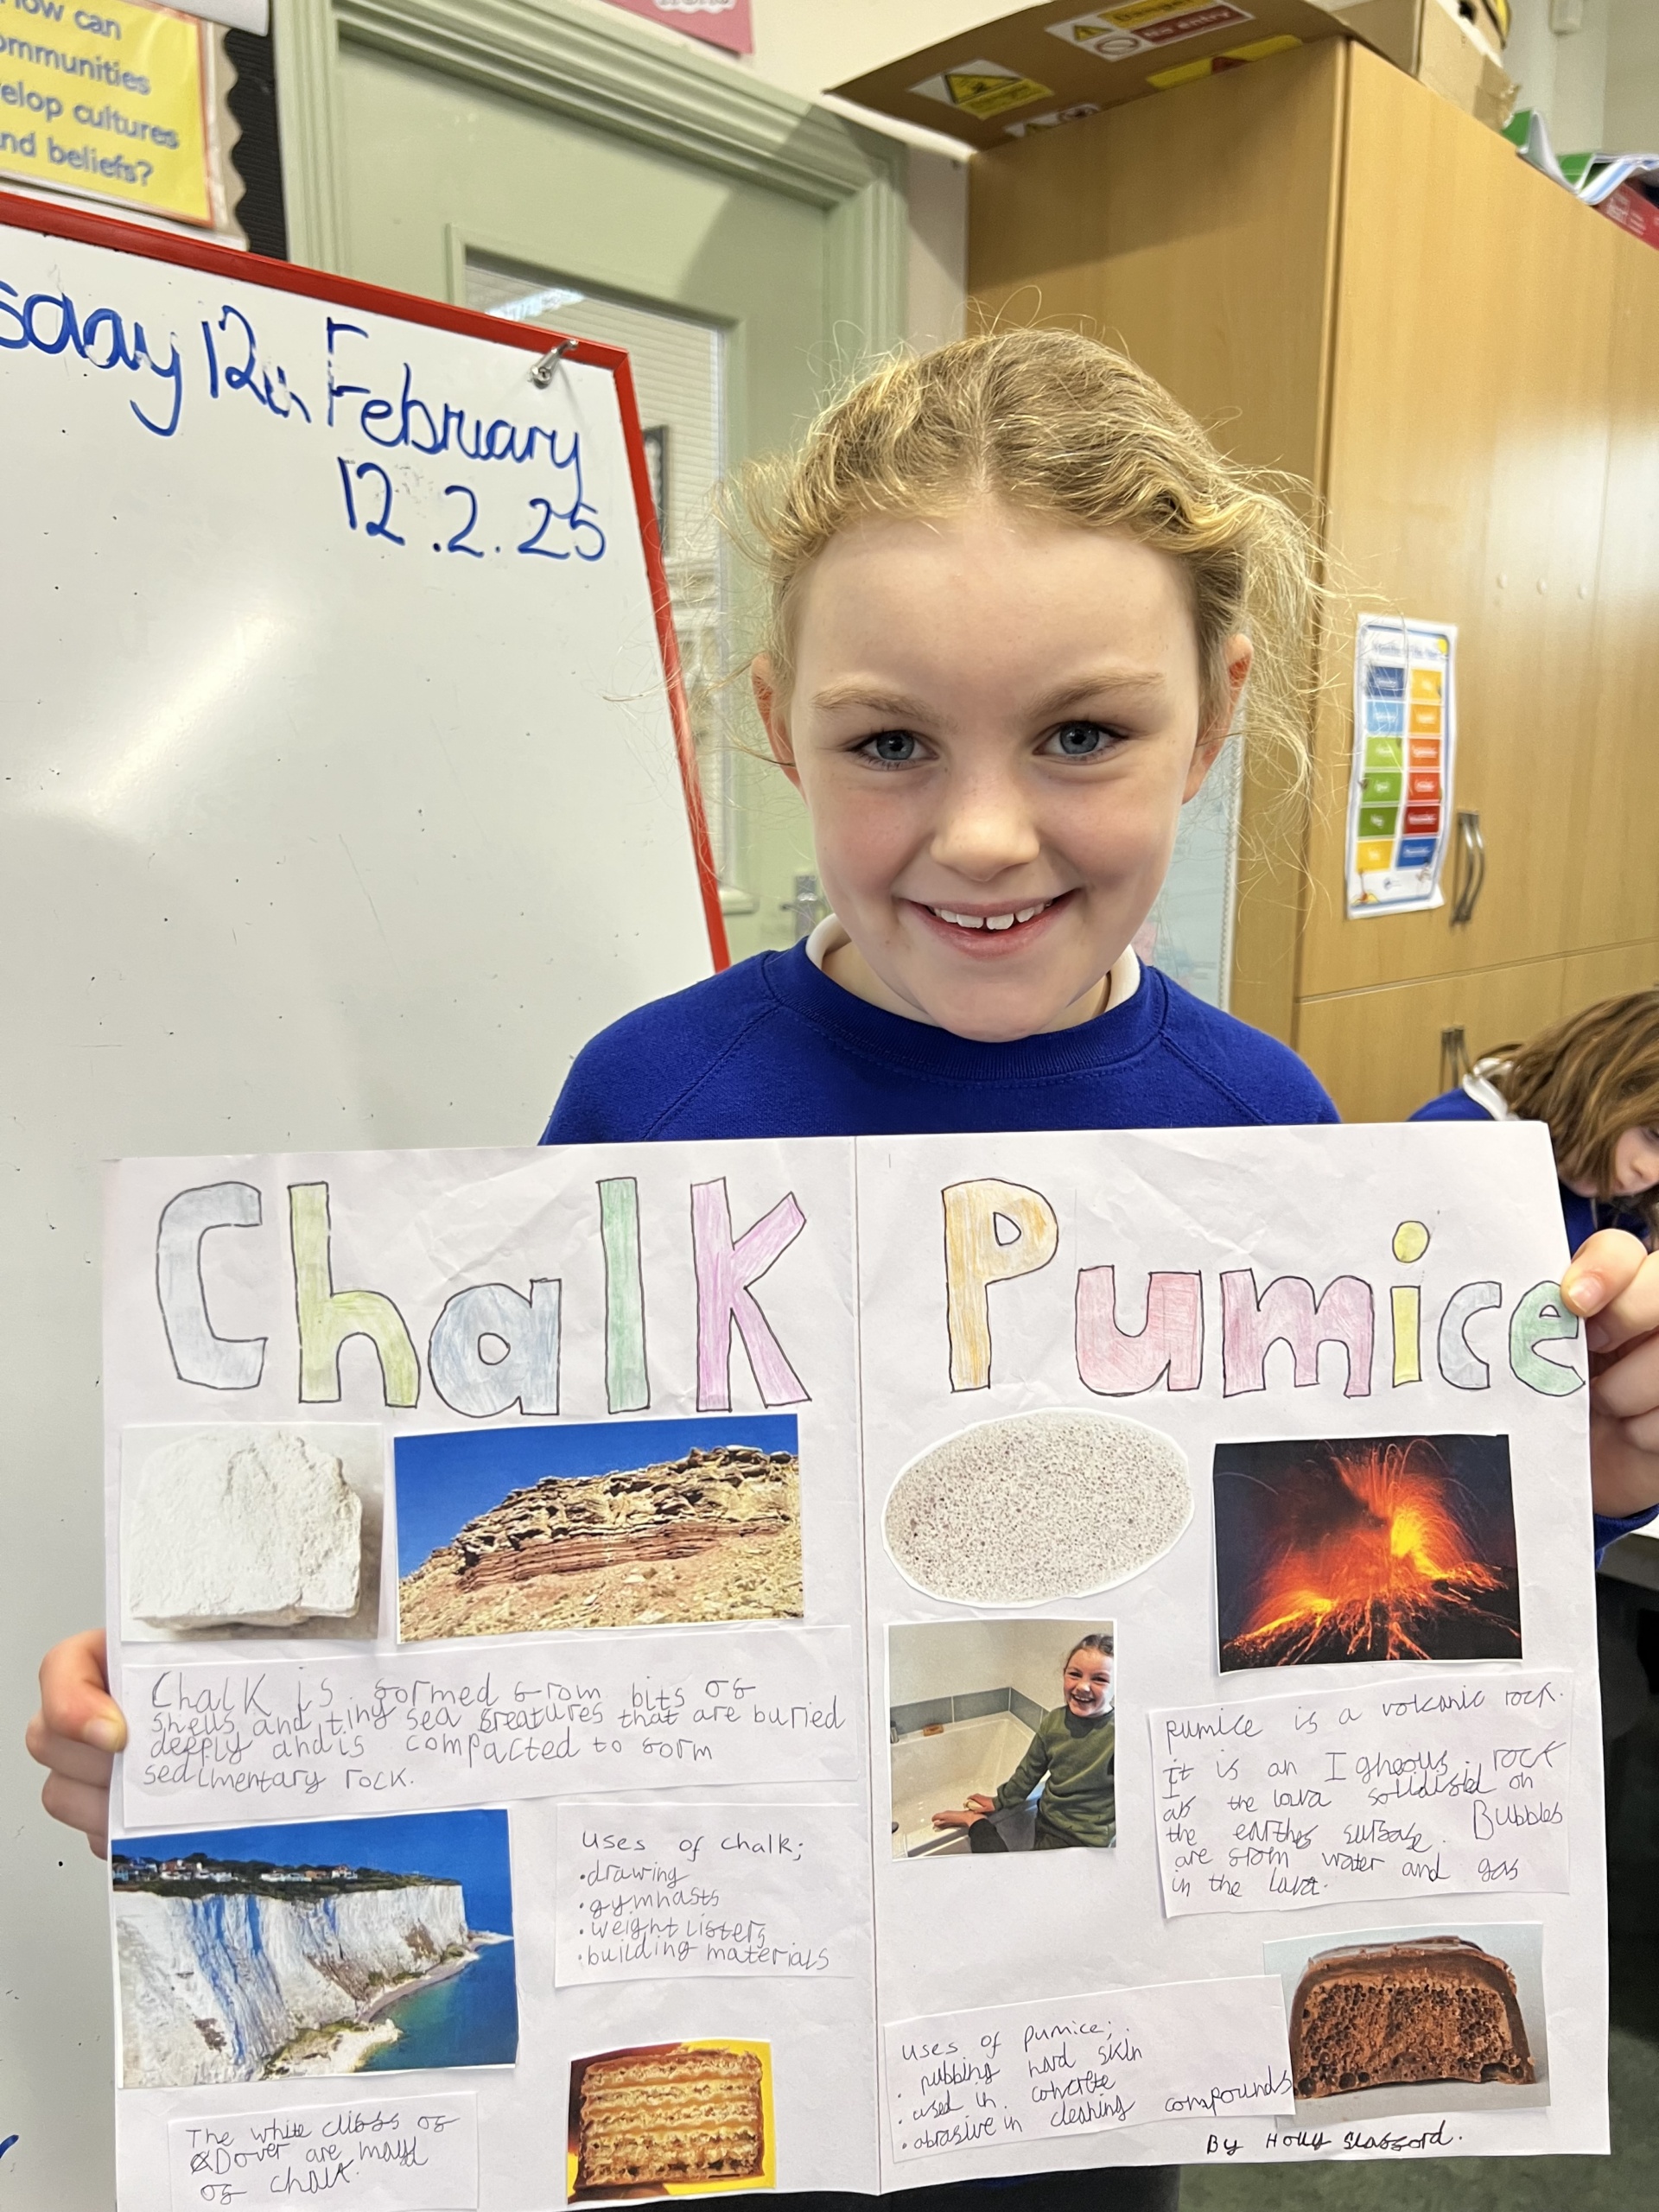 How can
ommunities
elop cultures
nd beliefs?
Danger
No entry
sday 12th February
12.2.25
Chalk
Pumice
Chalk is formed from bits of
shells, and tiny sea creatures that are buried
deeply and is compacted to form
sedimentary rock.
uses of chalk;
• drawing
• gymnasts
• weight lifters
• building materials
The white cliffs of
Dover are mayd
of chalk.
pumice is a volcanic rock.
it is an Igneous rock
as the lava on
the earths surface. Bubbles
are from water and gas
in the lava.
uses of pumice;
• rubbing hard skin
• used in concrete
• abrasive in cleaning compounds
By Holly